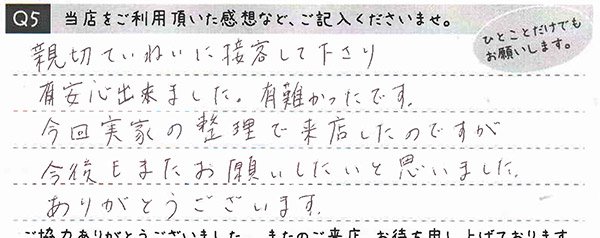 Q5 当店をご利用頂いた感想など、ご記入くださいませ。
ひとことだけでも
お願いします。
親切ていねいに接客して下さり
安心出来ました。有難かったです。
今回実家の整理で来店したのですが
今後もまたお願いしたいと思いました。
ありがとうございます。
ご協力ありがとうございました。またのご来店、お待ち申し上げております。